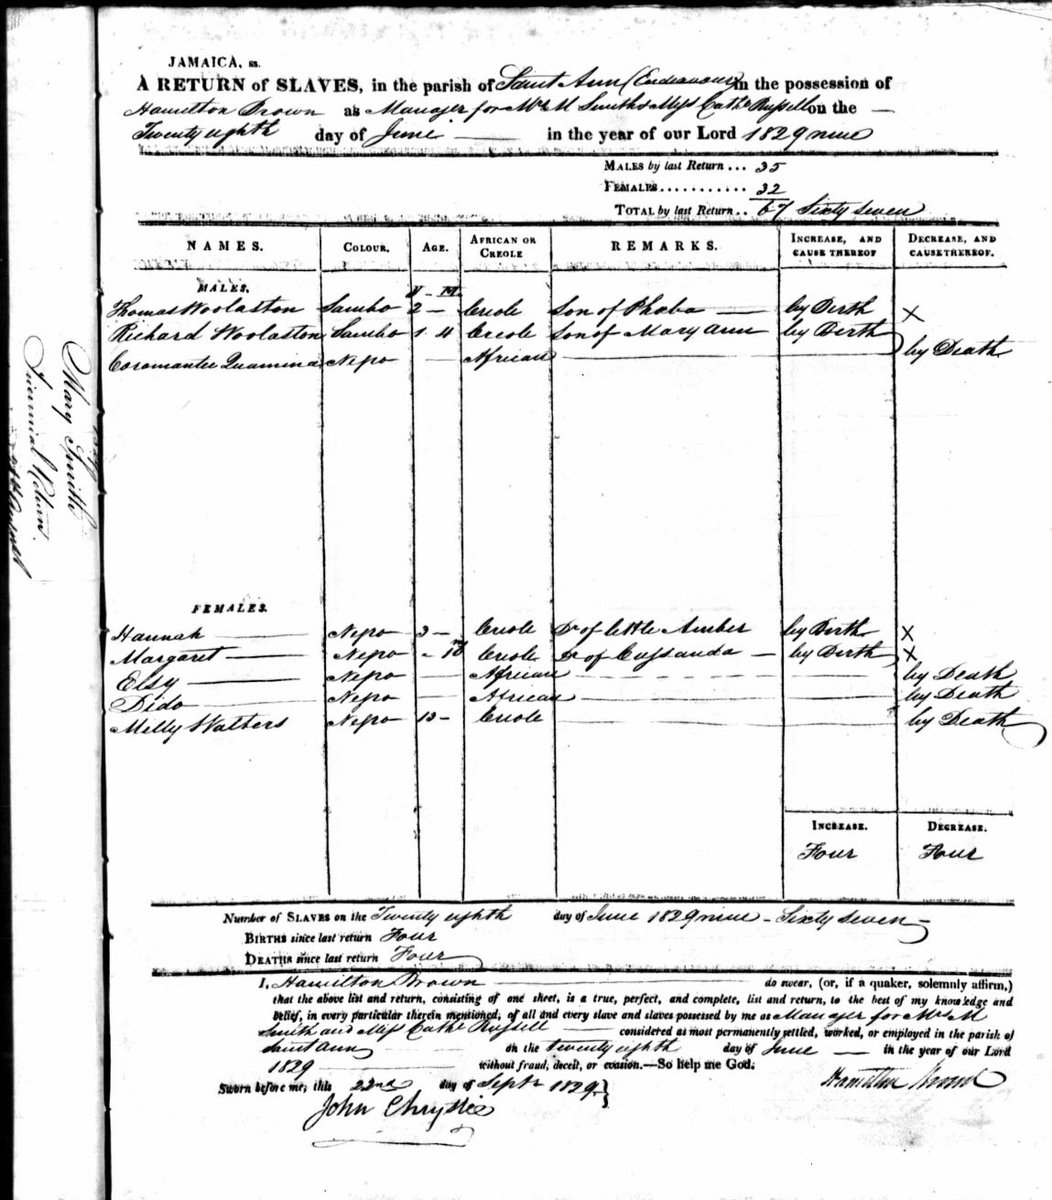 JAMAICA, ss.
A RETURN of SLAVES, in the parish of Saint Ann (Endeavour) in the possession of
Hamilton Brown as Manager for Mrs M Smith & Miss Cathe Russell on the
Twenty eighth day of June in the year of our Lord 1829 nine
MALES by last Return ... 35
FEMALES ........... 32
TOTAL by last Return .. 67 Sixty seven
NAMES. COLOUR. AGE. AFRICAN OR CREOLE REMARKS. INCREASE, AND CAUSE THEREOF DECREASE, AND CAUSE THEREOF.
MALES. Y - M
Thomas Woolaston Sambo 2 - Creole Son of Phoba by Birth X
Richard Woolaston Sambo 1 4 Creole Son of Mary Ann by Birth
Coromantee Quamina Negro African by Death
FEMALES.
Hannah Negro 3 - Creole Dr of little Amber by Birth X
Margaret Negro - 10 Creole Dr of Cassanda by Birth X
Elsy Negro African by Death
Dido Negro African by Death
Milly Walters Negro 13 - Creole by Death
INCREASE. DECREASE.
Four Four
Number of SLAVES on the Twenty eighth day of June 1829 nine - Sixty seven
BIRTHS since last return Four
DEATHS since last return Four
I, Hamilton Brown do swear, (or, if a quaker, solemnly affirm,)
that the above list and return, consisting of one sheet, is a true, perfect, and complete, list and return, to the best of my knowledge and
belief, in every particular therein mentioned, of all and every slave and slaves possessed by me as Manager for Mrs M
Smith and Miss Cathe Russell considered as most permanently settled, worked, or employed in the parish of
Saint Ann on the twenty eighth day of June in the year of our Lord
1829 without fraud, deceit, or evasion.—So help me God.
Hamilton Brown
Sworn before me, this 22nd day of Septr 1829.
John Chrystie
Mary Smith
Triennial Return.